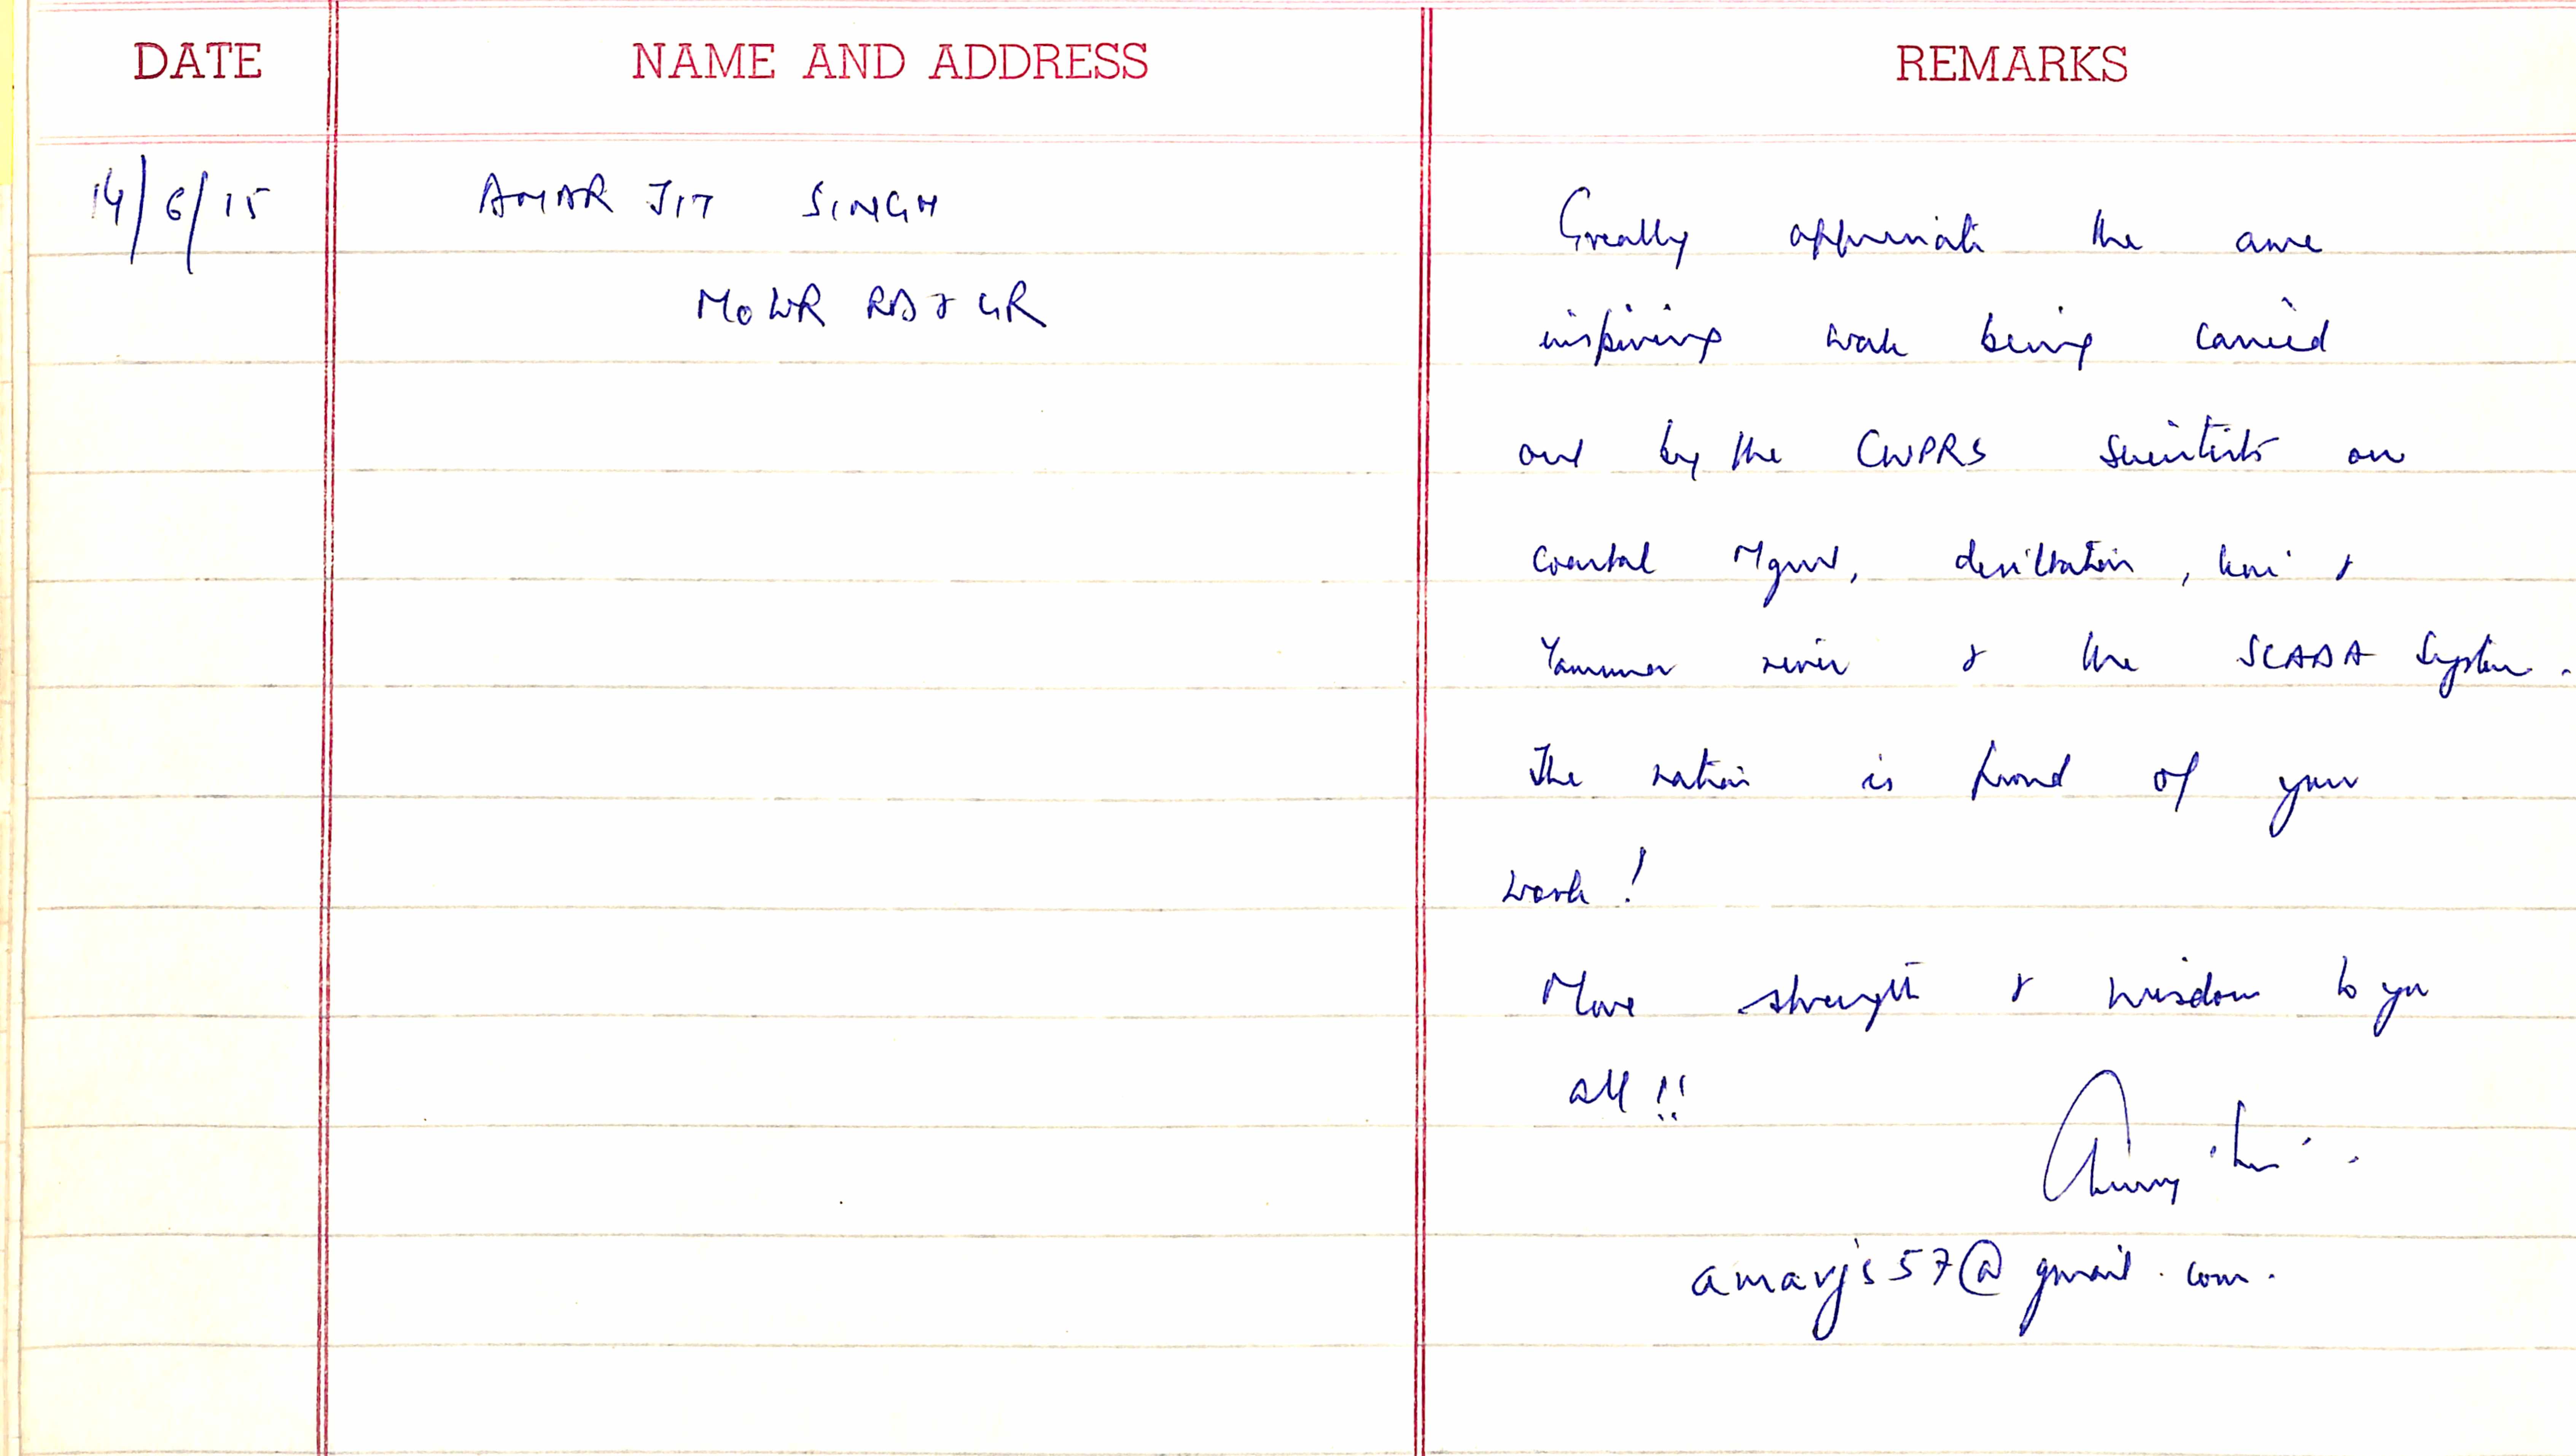 DATE NAME AND ADDRESS REMARKS
14/6/15 AMAR JIT SINGH
MoWR RD & GR
Greatly appreciate the awe
inspiring work being carried
out by the CWPRS Scientists on
Coastal Mgmt, desiltation, &
Yamuna river & the SCADA System.
The nation is proud of your
work!
More strength & wisdom to you
all!!
amarjs57@gmail.com.